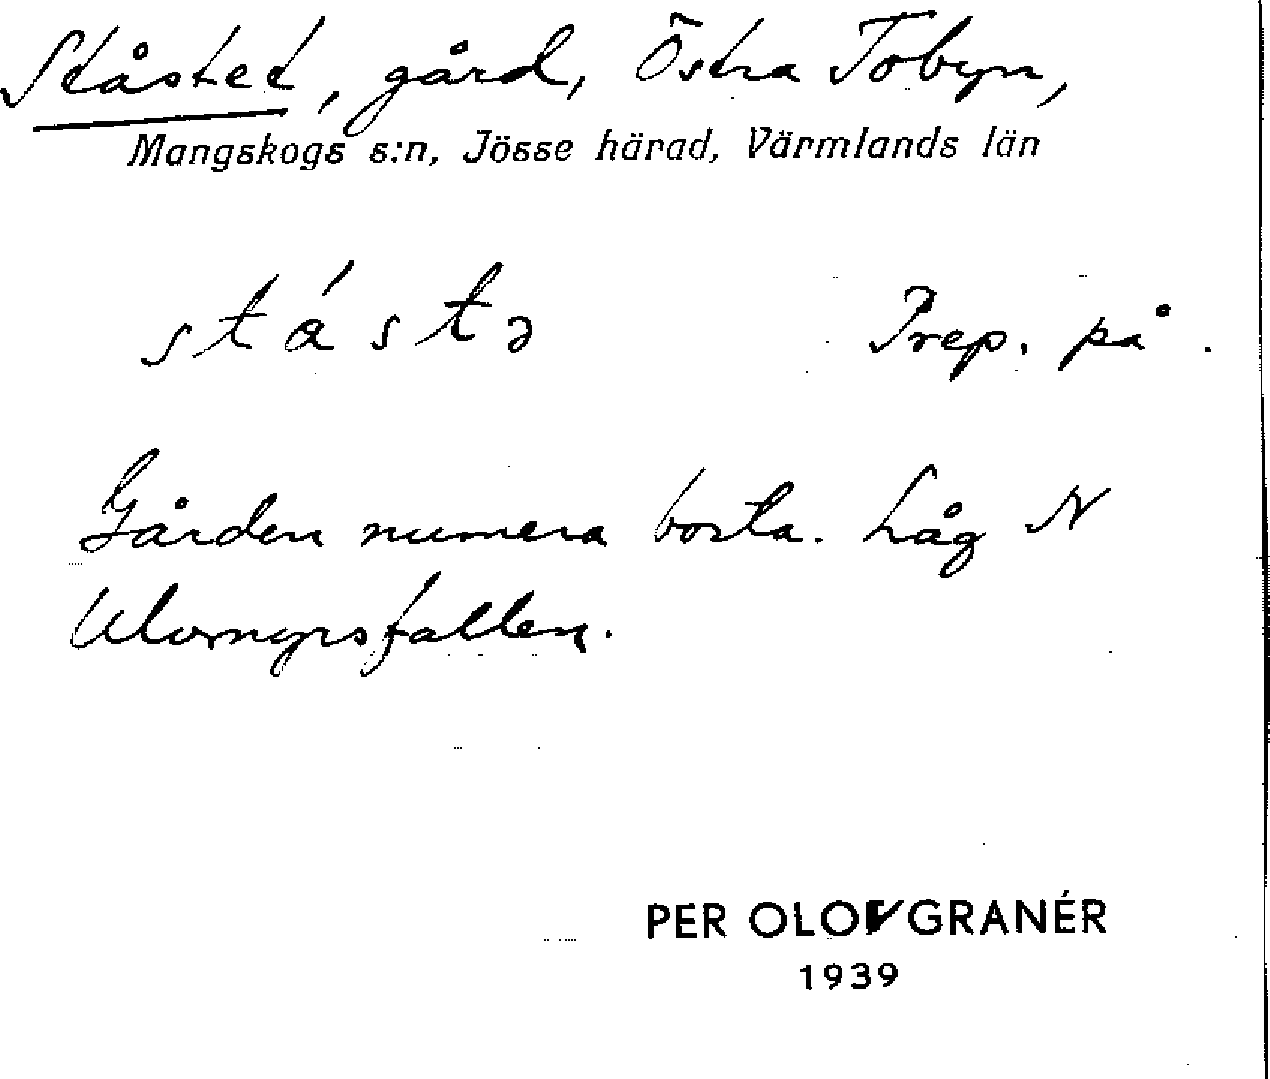 Ståstet, gård, Östra Tobyn,
Mangskogs s:n, Jösse härad, Värmlands län
stástə Prep. på.
Gården numera borta. Låg N
Ulvmyrsfallen.
PER OLOV GRANÉR
1939